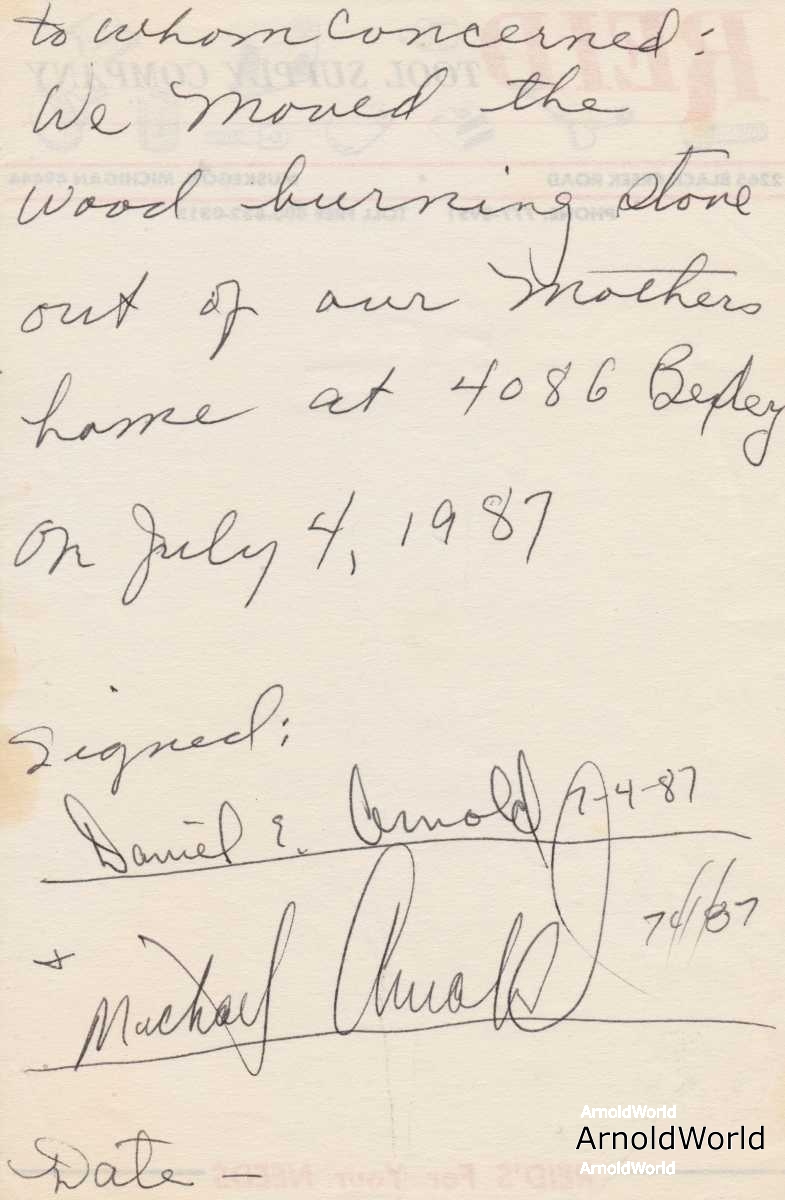 to whom concerned:
We moved the
wood burning stove
out of our Mothers
home at 4086 Bexley
on July 4, 1987
signed:
Daniel E. Arnold 7-4-87
+
Michael Arnold 7/4/87
Date -
ArnoldWorld
ArnoldWorld
ArnoldWorld
REID
TOOL SUPPLY COMPANY
2265 BLACK CREEK ROAD • MUSKEGON, MICHIGAN 49444
PHONE: TOLL FREE
REID'S For Your NEEDS